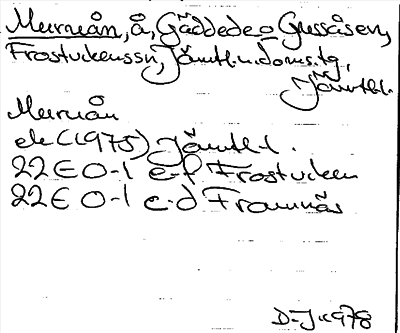 Murruån, å, Gäddede o Gussåsen,
Frostvikens sn, Jämtl. n. doms.tg,
Jämtl.
Murruån
ek (1975) Jämtl.l.
22E 0-1 e-f Frostviken
22E 0-1 c-d Framnäs
D-J 1978